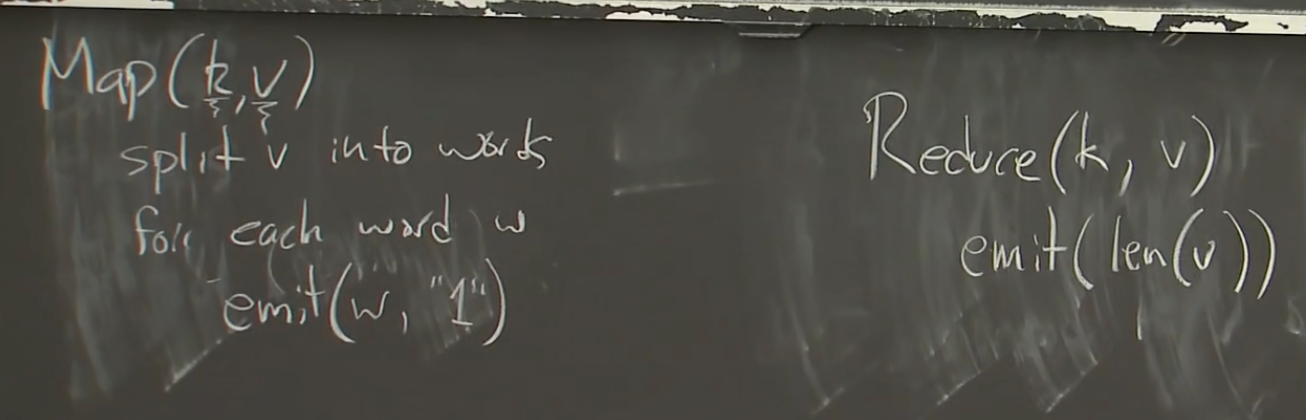 Map(k,v)
split v into words
for each word w
emit(w, "1")
Reduce(k, v)
emit(len(v))